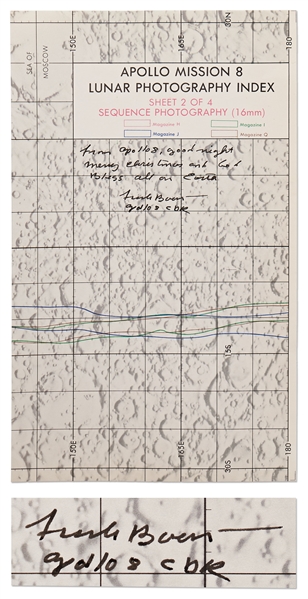 30N
150E
165E
180
SEA OF
MOSCOW
APOLLO MISSION 8
LUNAR PHOTOGRAPHY INDEX
SHEET 2 OF 4
SEQUENCE PHOTOGRAPHY (16mm)
Magazine H
Magazine I
Magazine J
Magazine Q
from apollo 8, good night
merry christmas and God
Bless all on Earth
Frank Borman
apollo 8 CDR
15S
150E
165E
30S
180
Frank Borman
apollo 8 CDR